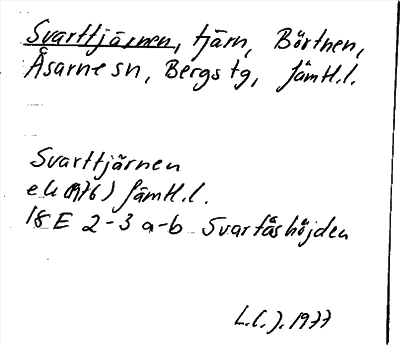 Svarttjärnen, tjärn, Börtnen,
Åsarne sn, Bergs tg, Jämtl.l.
Svarttjärnen
ek (1976) Jämtl.l.
18 E 2-3 a-b Svartåshöjden
L.C.J. 1977